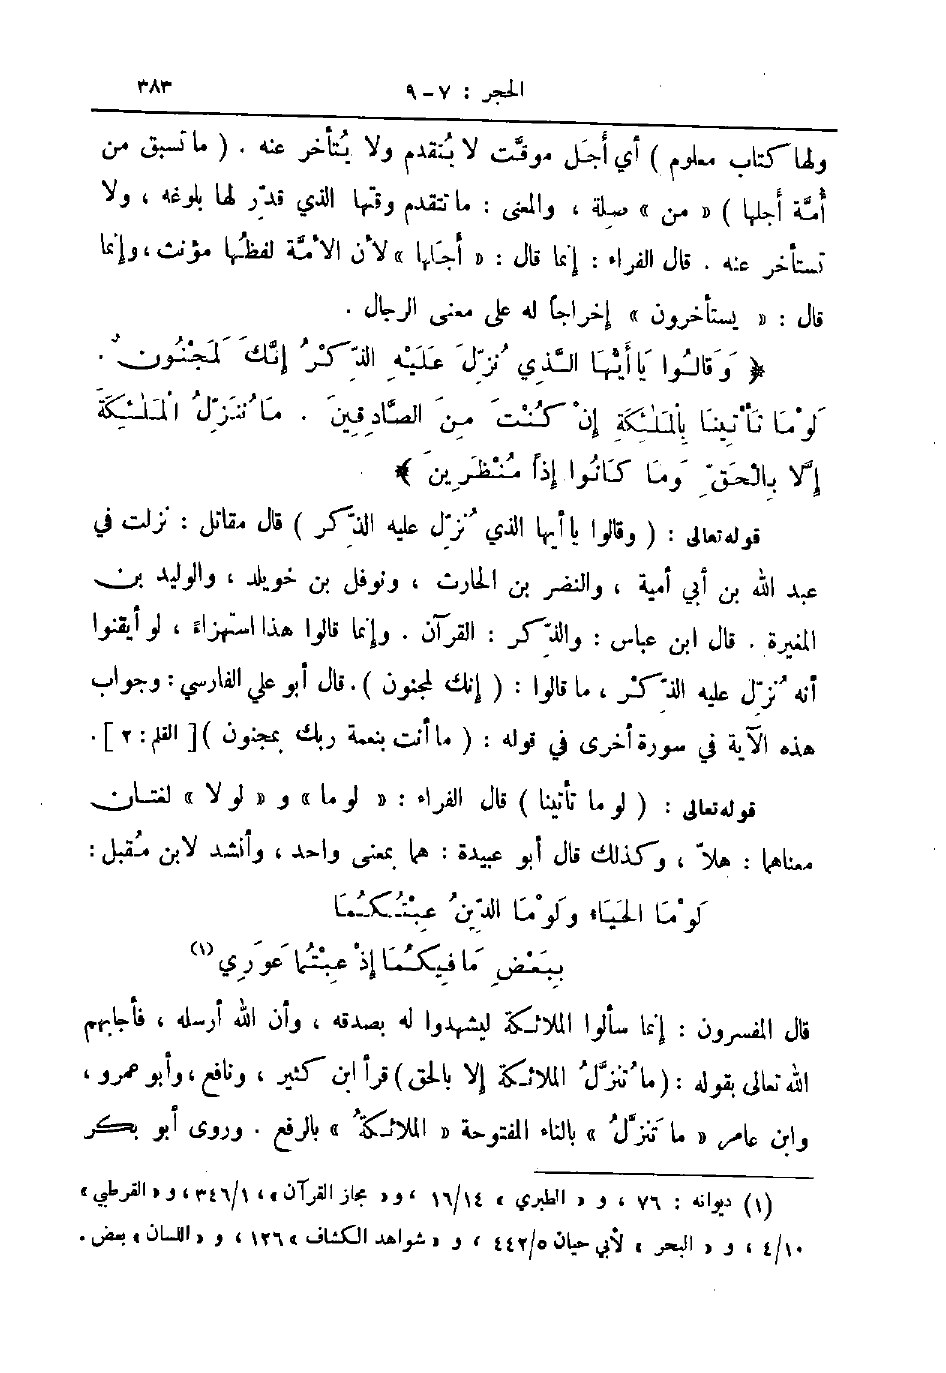 الحجر : ٧ – ٩ ٣٨٣
ولها كتاب معلوم ) أي أَجَل موقَّت لا يُتقدم ولا يُتأخر عنه . ( ما تسبق من
أُمَّة أجلها ) « من » صلة ، والمعنى : ما تتقدم وقتها الذي قدّر لها بلوغه ، ولا
تستأخر عنه . قال الفراء : إنما قال : « أجَلها » لأن الأمَّة لفظُها مؤنث ، وإنما
قال : « يستأخرون » إخراجاً له على معنى الرجال .
﴿ وَقَالُوا يَا أَيُّهَا الَّذِي نُزِّلَ عَلَيْهِ الذِّكْرُ إِنَّكَ لَمَجْنُونٌ .
لَوْ مَا تَأْتِينَا بِالْمَلٰئِكَةِ إِنْ كُنْتَ مِنَ الصَّادِقِينَ . مَا نُنَزِّلُ الْمَلٰئِكَةَ
إِلَّا بِالْحَقِّ وَمَا كَانُوا إِذاً مُنْظَرِينَ ﴾
قوله تعالى : ( وقالوا يا أيها الذي نُزِّل عليه الذِّكر ) قال مقاتل : نزلت في
عبد الله بن أبي أمية ، والنضر بن الحارث ، ونوفل بن خويلد ، والوليد بن
المغيرة . قال ابن عباس : والذِّكر : القرآن . وإنما قالوا هذا استهزاءً ، لو أيقنوا
أنه نُزِّل عليه الذِّكْر ، ما قالوا : ( إنك لمجنون ) . قال أبو علي الفارسي : وجواب
هذه الآية في سورة أخرى في قوله : ( ما أنت بنعمة ربك بمجنون ) [ القلم : ٢ ] .
قوله تعالى : ( لو ما تأتينا ) قال الفراء : « لو ما » و « لو لا » لغتان
معناهما : هلاّ ، وكذلك قال أبو عبيدة : هما بمعنى واحد ، وأنشد لابن مُقبل :
لَوْ مَا الحَيَاءُ وَلَوْ مَا الدِّينُ عِبْتُكُمَا
بِبَعْضِ مَا فِيكُمَا إِذْ عِبْتُمَا عَوَرِي (١)
قال المفسرون : إنما سألوا الملائكة ليشهدوا له بصدقه ، وأن الله أرسله ، فأجابهم
الله تعالى بقوله : ( ما نُنزِّلُ الملائكة إلا بالحق ) قرأ ابن كثير ، ونافع ، وأبو عمرو ،
وابن عامر « ما تَنَزَّلُ » بالتاء المفتوحة « الملائكةُ » بالرفع . وروى أبو بكر
(١) ديوانه : ٧٦ ، و « الطبري » ١٦/١٤ ، و « مجاز القرآن » ، ٣٤٦/١ ، و « القرطبي »
٤/١٠ ، و « البحر » لأبي حيان ٤٤٢/٥ ، و « شواهد الكشاف » ١٢٦ ، و « اللسان » بعض .